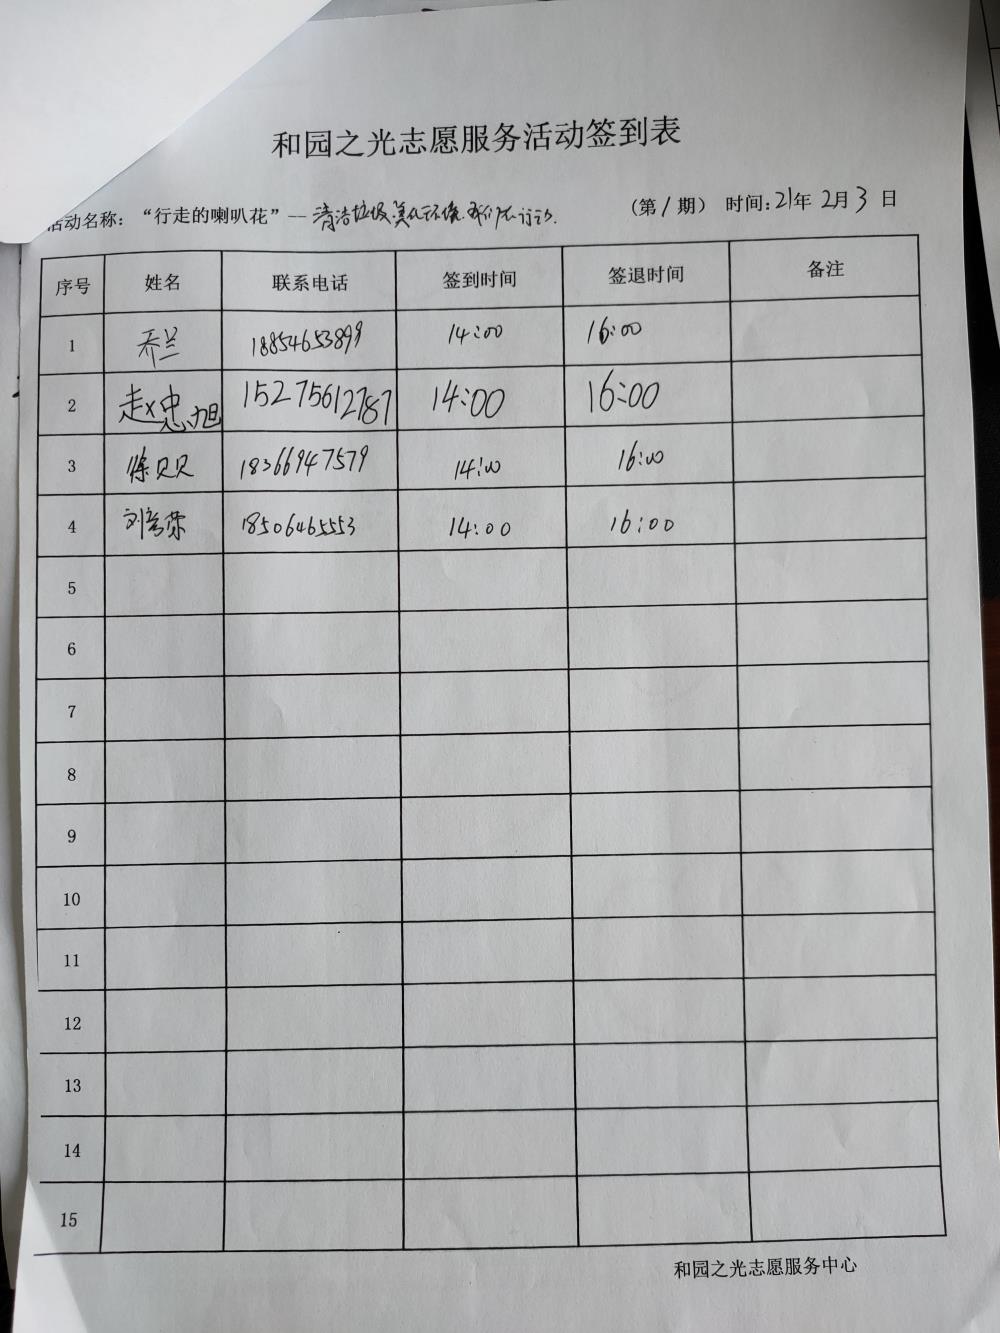 和园之光志愿服务活动签到表
活动名称：“行走的喇叭花”--清洁垃圾,美化环境,我们在行动. （第1期） 时间:21年2月3日
序号 姓名 联系电话 签到时间 签退时间 备注
1 乔兰 18854653899 14:00 16:00
2 赵忠旭 15275612787 14:00 16:00
3 徐贝贝 18366947579 14:00 16:00
4 刘 荣 18506465553 14:00 16:00
5
6
7
8
9
10
11
12
13
14
15
和园之光志愿服务中心